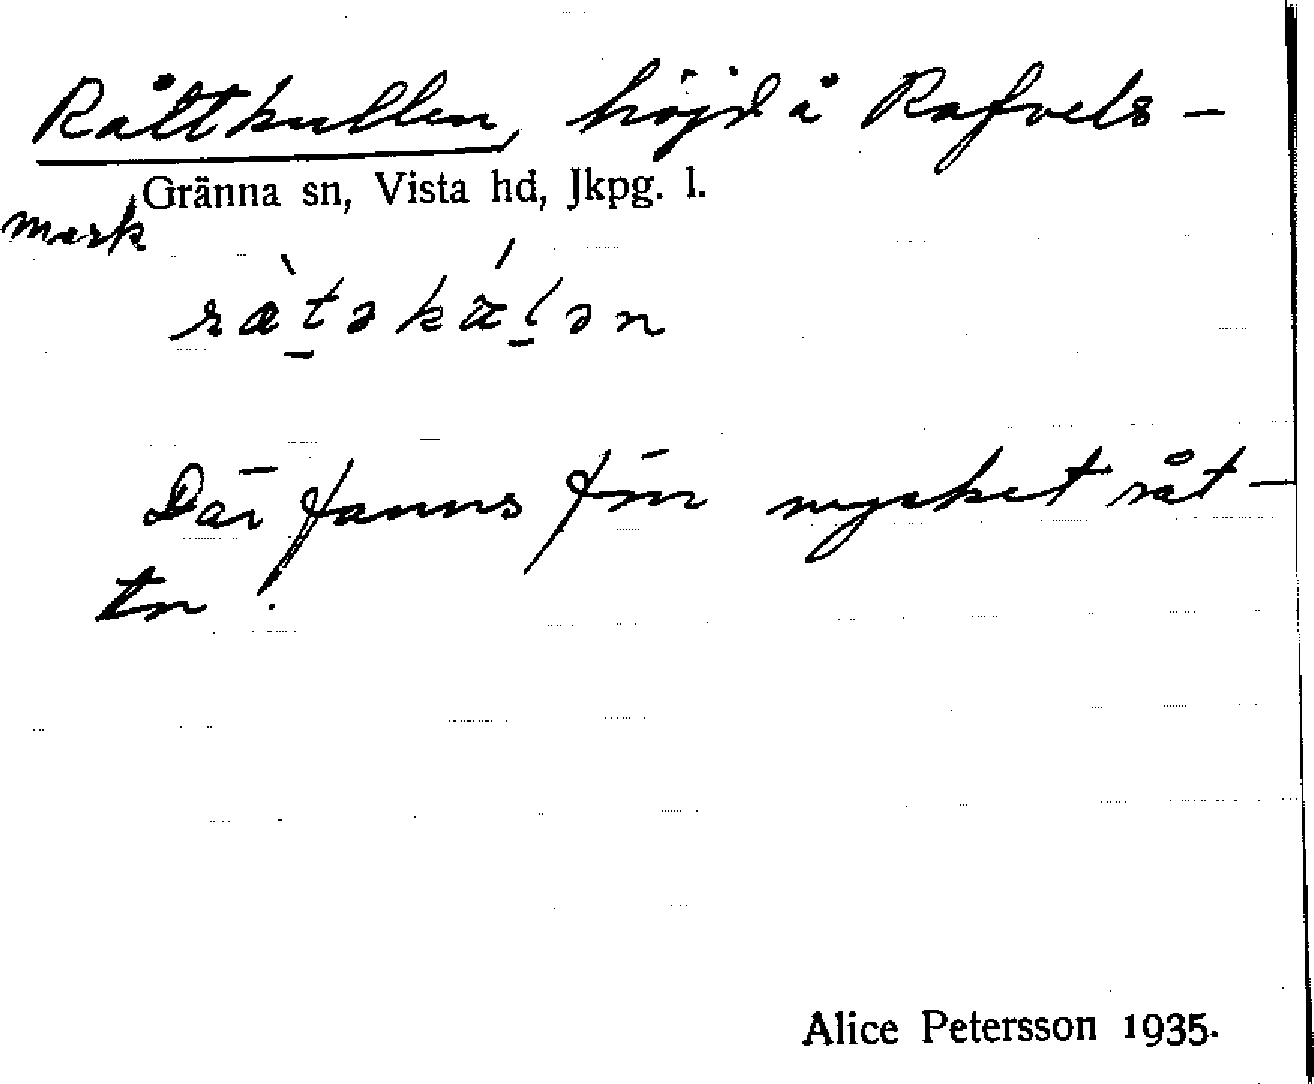 Råttkullen, höjd å Rafvels-
Gränna sn, Vista hd, Jkpg. l.
mark
Där fanns förr mycket råt-
tor.
Alice Petersson 1935.